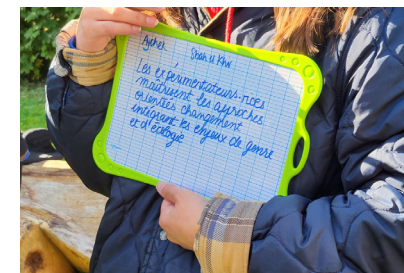 Les expérimentateurs·rices
maîtrisent les approches
orientées changement
intégrant les enjeux de genre
et d'écologie